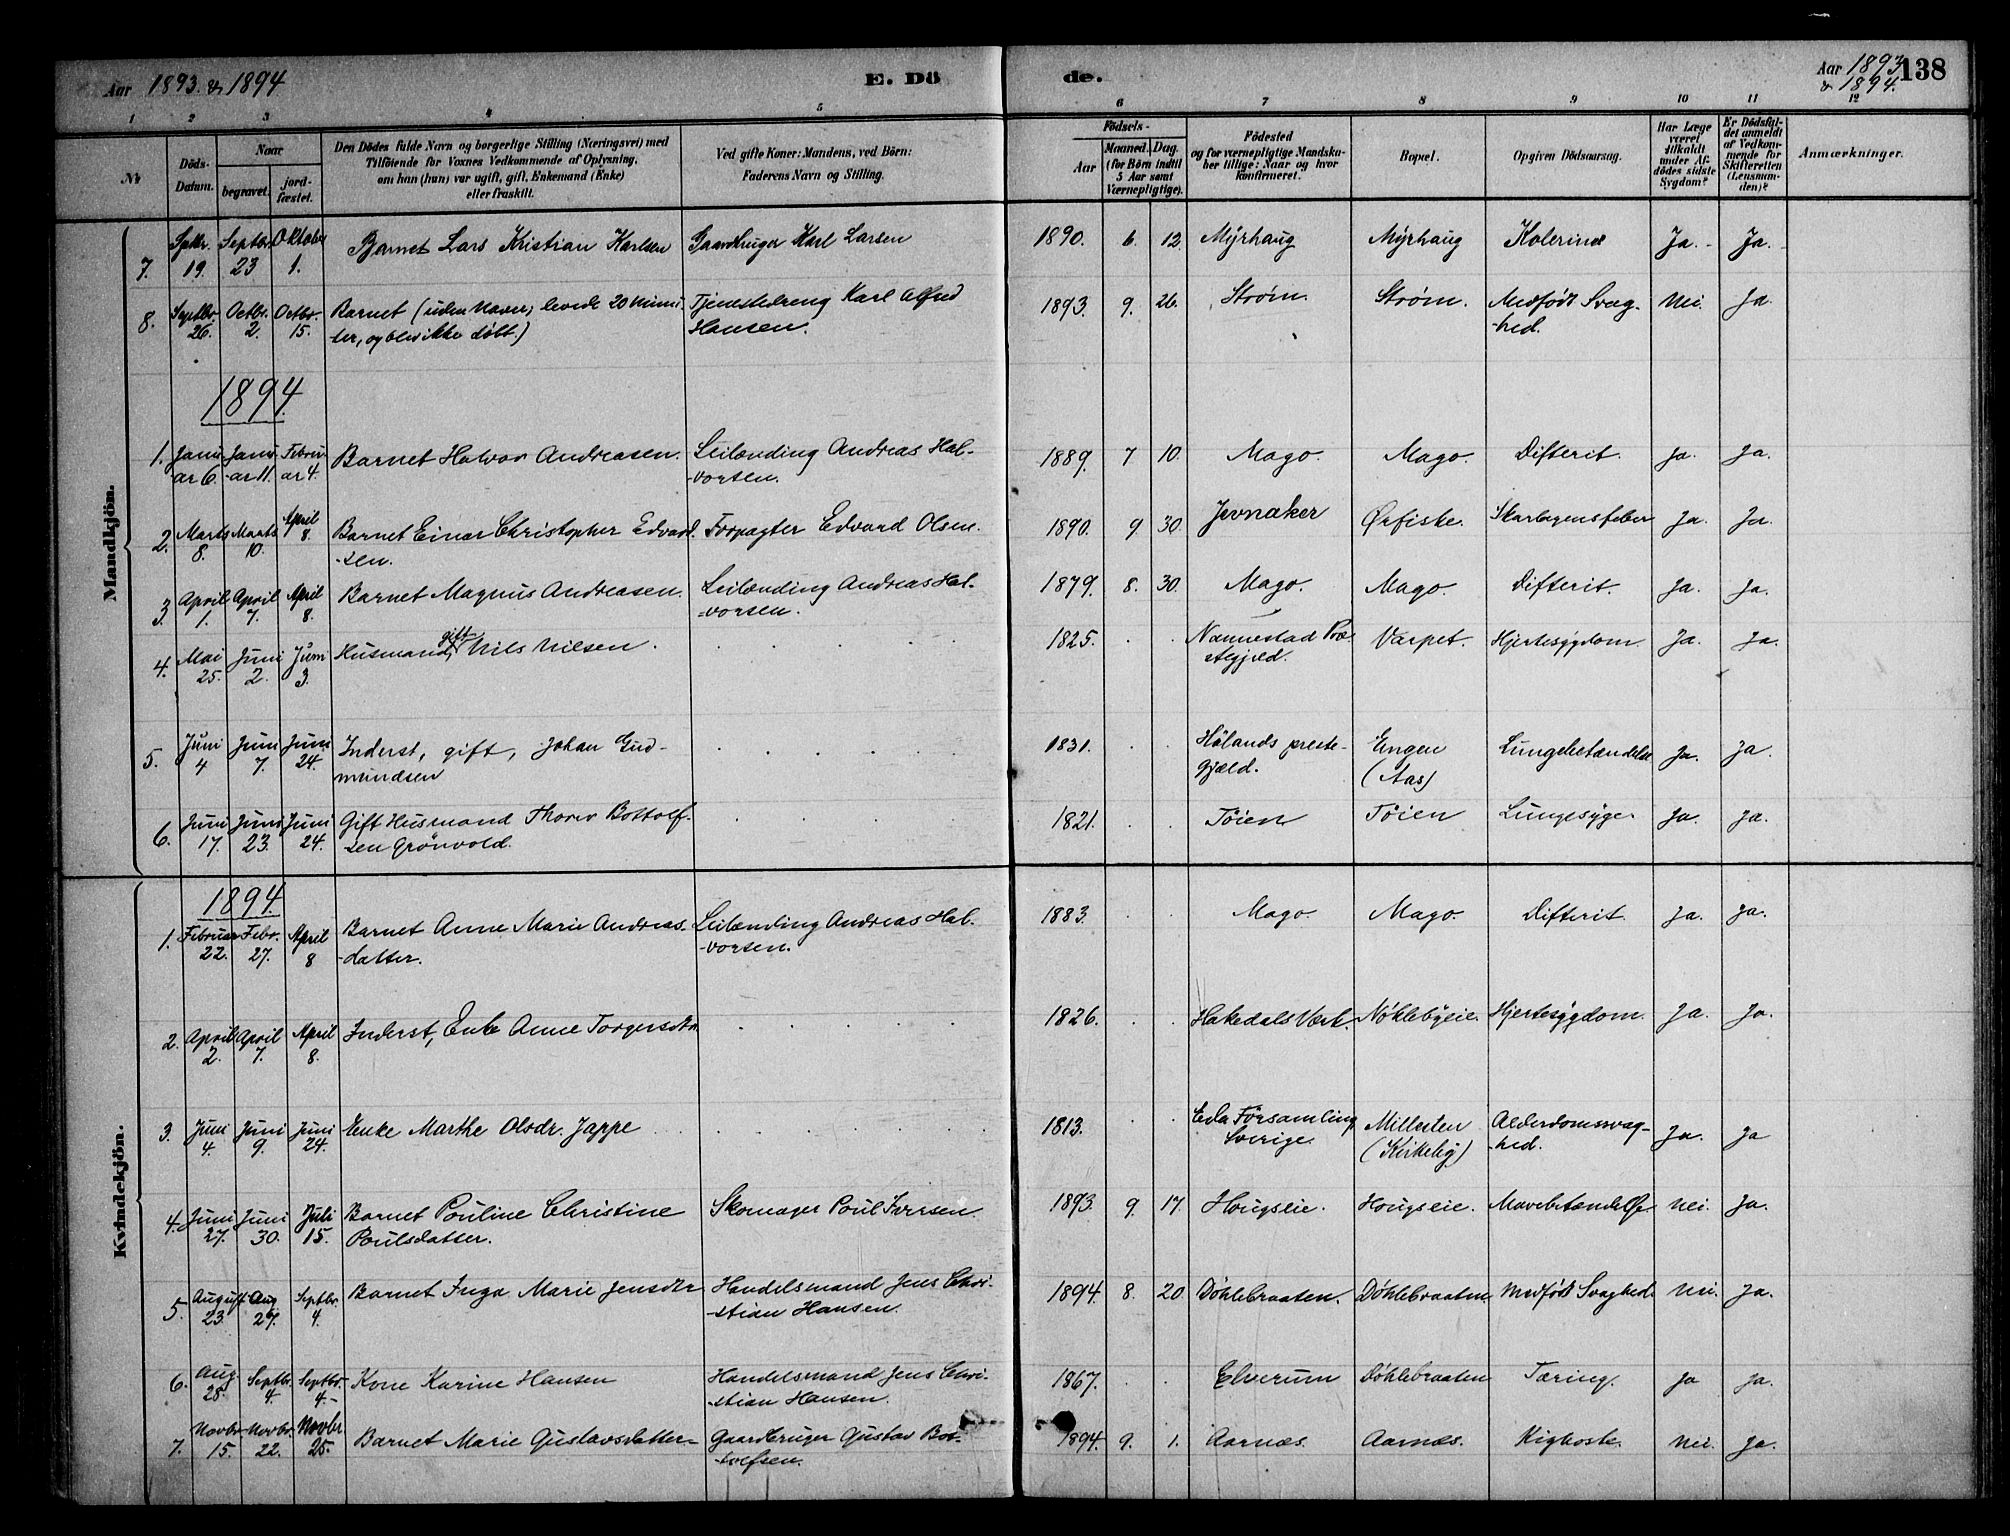 Aar 1893 & 1894
E. Dö
de.
Aar 1893
& 1894.
138
1 2 3 4 5 6 7 8 9 10 11 12
№
Döds-
Datum.
Naar
begravet.
jord-
fæstet.
Den Dödes fulde Navn og borgerlige Stilling (Næringsvei) med
Tilföiende for Voxnes Vedkommende af Oplysning,
om han (hun) var ugift, gift, Enkemand (Enke)
eller fraskilt.
Ved gifte Koner: Mandens, ved Börn:
Faderens Navn og Stilling.
Födsels-
Aar
Maaned. Dag.
(for Börn indtil
5 Aar samt
Værnepligtige).
Födested
og for værnepligtige Mandska-
ber tillige: Naar og hvor
konfirmeret.
Bopæl.
Opgiven Dödsaarsag.
Har Læge
været
tilkaldt
under Af-
dödes sidste
Sygdom?
Er Dödsfal-
det anmeldt
af Vedkom-
mende for
Skifteretten
(Lensman-
den)?
Anmærkninger.
Mandkjön.
7. Sptbr. 19. Septbr. 23 Oktober 1. Barnet Lars Kristian Karlsen Gaardbruger Karl Larsen 1890. 6. 12. Myrhaug Myrhaug Kolerine Ja. Ja.
8. Septbr. 26. Octbr. 2. Octbr. 15. Barnet (uden Navn; levede 20 Minut-
ter, og blev ikke døbt.) Tjenestedreng Karl Alfred
Hansen. 1893. 9. 26. Strøm. Strøm. Medfødt Svag-
-hed. Nei. Ja.
1894.
1. Janu-
ar 6. Janu-
-ar 11. Febru-
ar 4. Barnet Halvor Andreasen. Leilænding Andreas Hal-
-vorsen. 1889. 7 10. Mago. Mago. Difterit. Ja. Ja.
2. Marts 8. Marts 10. April 8. Barnet Einar Christopher Edvard-
-sen. Forpagter Edvard Olsen. 1890. 9 30. Jevnaker Ørfiske. Skarlagensfeber Ja. Ja.
3. April 1. April 7. April 8. Barnet Magnus Andreasen. Leilænding Andreas Hal-
-vorsen. 1879. 8. 30. Mago. Mago. Difterit. Ja. Ja.
4. Mai 25. Juni 2. Juni 3. Husmand, gift Nils Nilsen. 1825. Nannestad Præ-
stegjeld. Varpet. Hjertesygdom. Ja. Ja.
5. Juni 4 Juni 7. Juni 24. Inderst, gift, Johan Gud-
mundsen 1831. Hølands preste-
gjæld. Engen
(Aas) Lungebetændelse Ja. Ja.
6. Juni 17. Juni 23. Juni 24. Gift Husmand Thorer Bottolf-
sen Grönvold. 1821. Töien Töien Lungesyge Ja. Ja.
Kvindekjön.
1894.
1. Februar 22. Febr. 27. April 8 Barnet Anne Marie Andreas-
-datter. Leilænding Andreas Hal-
-vorsen. 1883. Mago. Mago. Difterit. Ja. Ja.
2. April 2. April 7. April 8. Inderst, Enke Anne Torgersdtr. 1826. Hakedals Værk. Nöklebyeie. Hjertesygdom. Ja. Ja.
3. Juni 4. Juni 9. Juni 24. Enke Marthe Olsdr. Jappe 1813. Eda Församling
Sverige. Millesten
(Kirkeby) Alderdomssvag-
-hed. Ja. Ja
4. Juni 27. Juni 30. Juli 15. Barnet Pouline Christine
Poulsdatter. Skomager Poul Iversen. 1893. 9. 17. Hougseie. Hougseie. Mavebetændelse Nei. Ja.
5. August 23. Aug. 27. Septbr. 4. Barnet Inga Marie Jensdtr Handelsmand Jens Chri-
stian Hansen. 1894. 8. 20 Döhlebraaten. Döhlebraaten. Medfödt Svaghed Nei. Ja.
6. Aug. 28. Septbr. 4. Septbr. 4. Kone Karine Hansen Handelsmand Jens Chri-
-stian Hansen. 1867. Elverum Döhlebraaten Tæring. Ja Ja.
7. Novbr. 15. Novbr. 22. Novbr. 25. Barnet Marie Gustavsdatter Gaardbruger Gustav Bot-
-tolfsen. 1894. 9. 1. Aarnæs. Aarnæs. Kighoste. Nei. Ja.